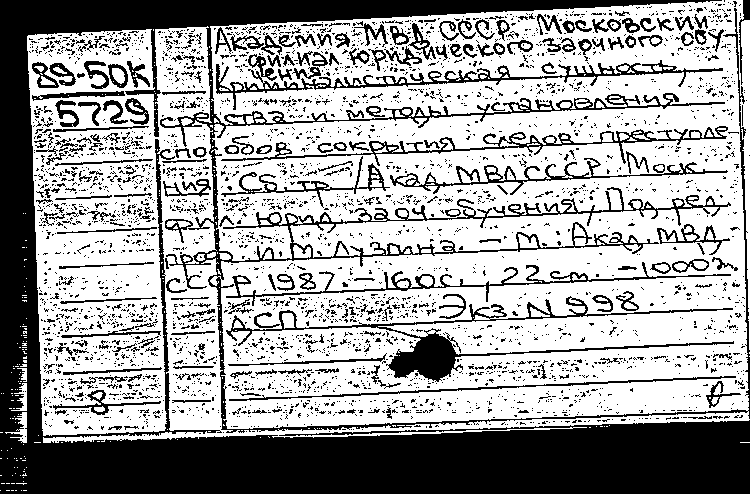 Академия МВД СССР Московский
филиал юридического заочного обу-
чения.
89-50К
5729
Криминалистическая сущность,
средства и методы установления
способов сокрытия следов преступле
ния: Сб. тр / Акад. МВД СССР. Моск.
фил. юрид. заоч. обучения; Под ред
проф. И. М. Лузгина. — М.: Акад. МВД
СССР, 1987. — 160 с.; 22 см. — 1000 э.
ДСП. Экз. N 998.
8